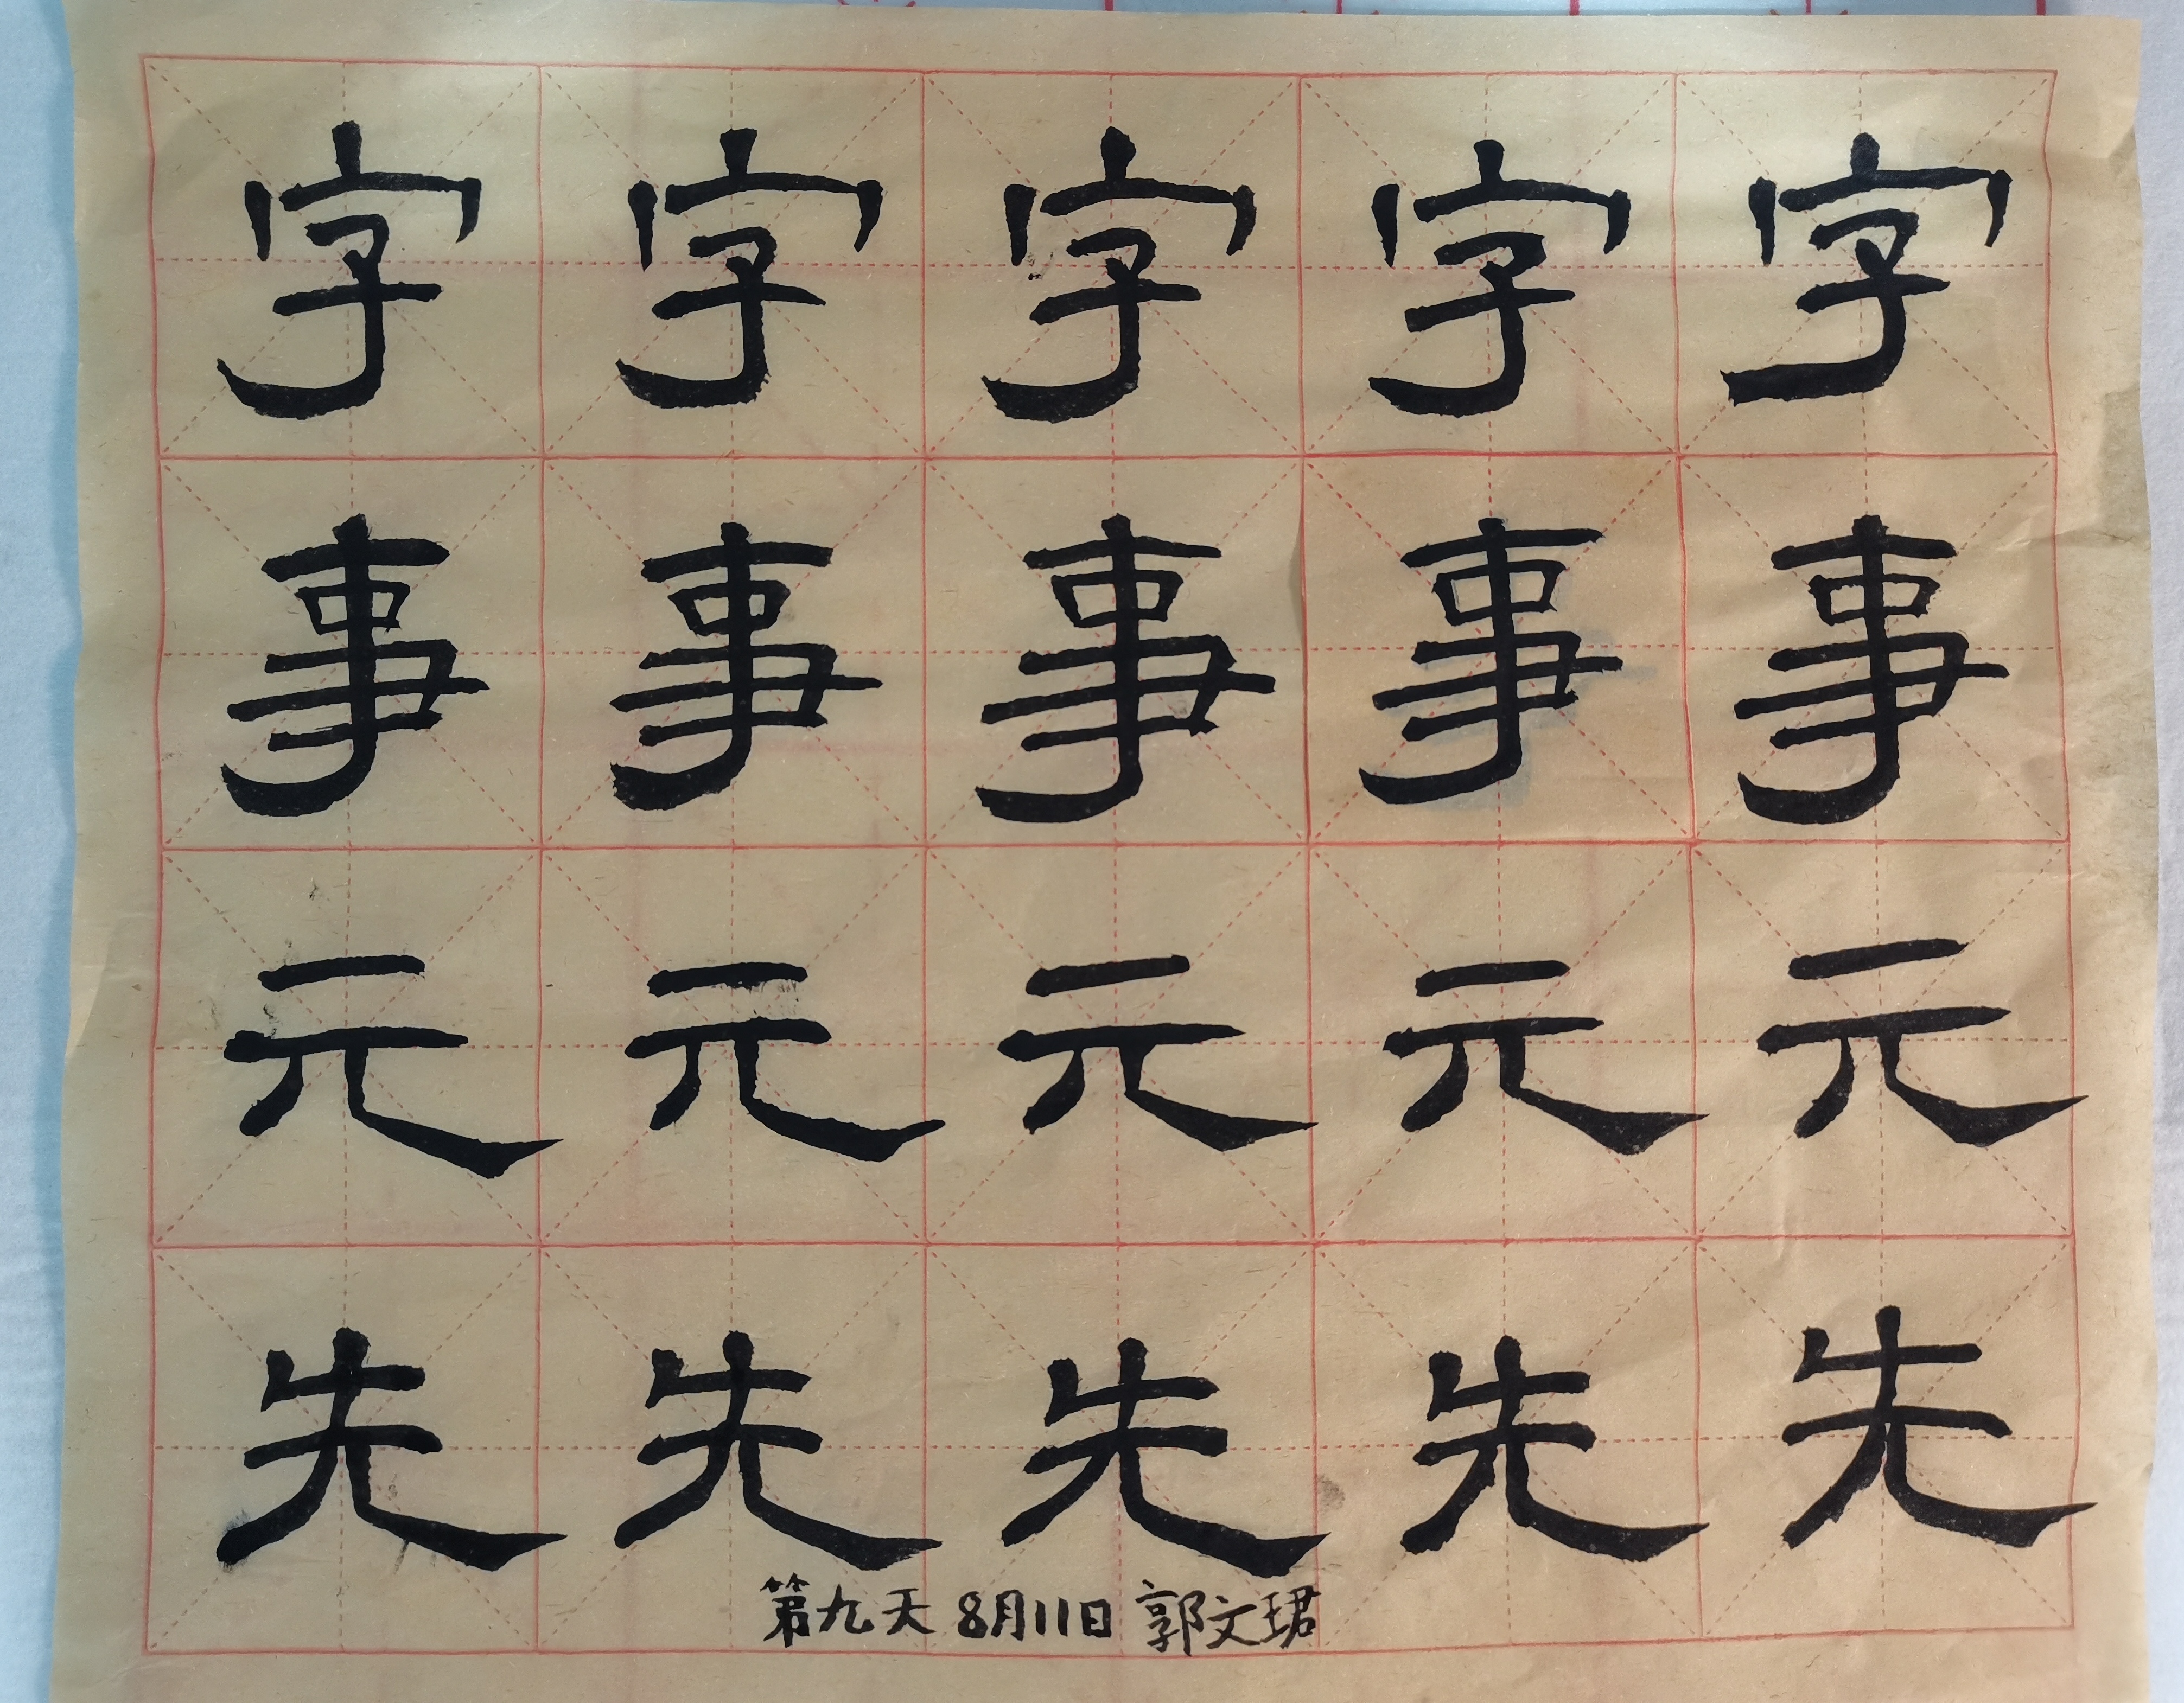 字字字字字
事事事事事
元元元元元
先先先先先
第九天 8月11日 郭文珺